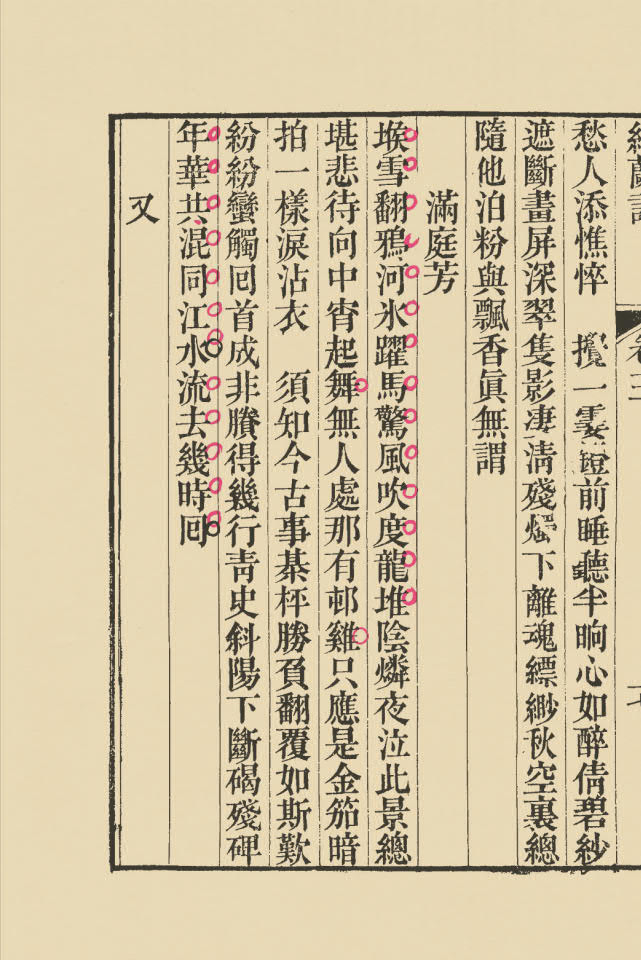 愁人添憔悴　攪一霎鐙前睡聽半晌心如醉倩碧紗
遮斷畫屏深翠隻影凄清殘燭下離魂縹緲秋空裏總
隨他泊粉與飄香眞無謂
滿庭芳
堠雪翻鴉河氷躍馬驚風吹度龍堆陰燐夜泣此景總
堪悲待向中宵起舞無人處那有邨雞只應是金笳暗
拍一樣淚沾衣　須知今古事棊枰勝負翻覆如斯歎
紛紛蠻觸回首成非賸得幾行靑史斜陽下斷碣殘碑
年華共混同江水流去幾時回
又